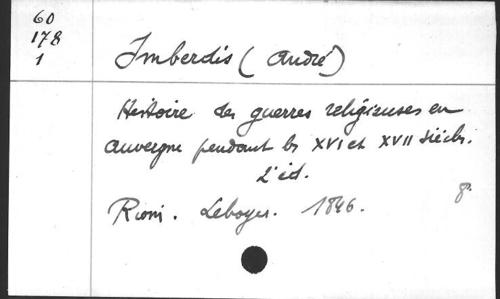 60
178
1
Imberdis (André)
Histoire des guerres religieuses en
Auvergne pendant les XVI et XVII siècles.
2e éd.
Riom. Leboyer. 1846. 8°